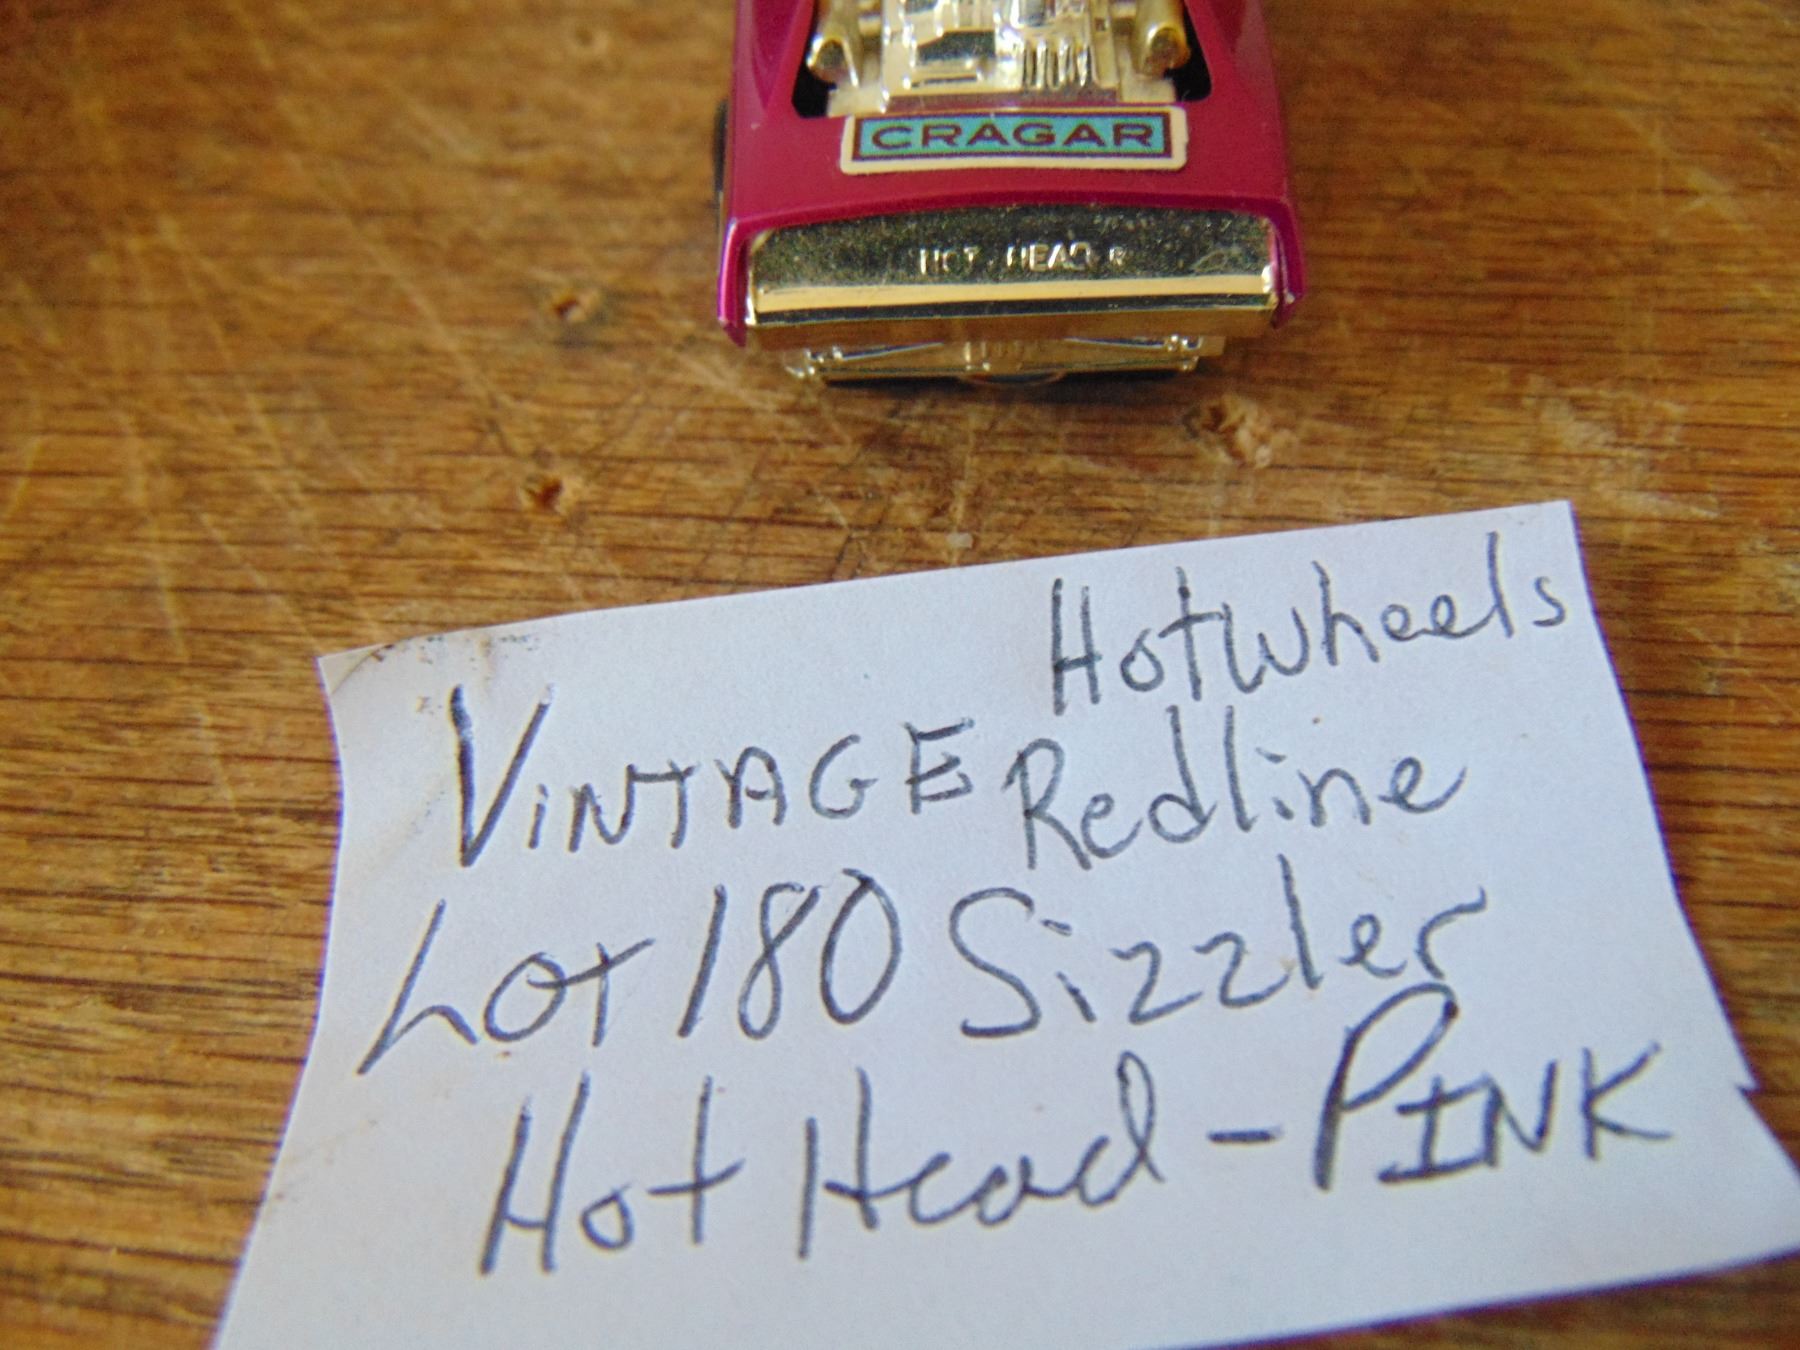 CRAGAR
HOT HEAD
Hotwheels
VINTAGE Redline
Lot 180 Sizzler
Hot Head - PINK